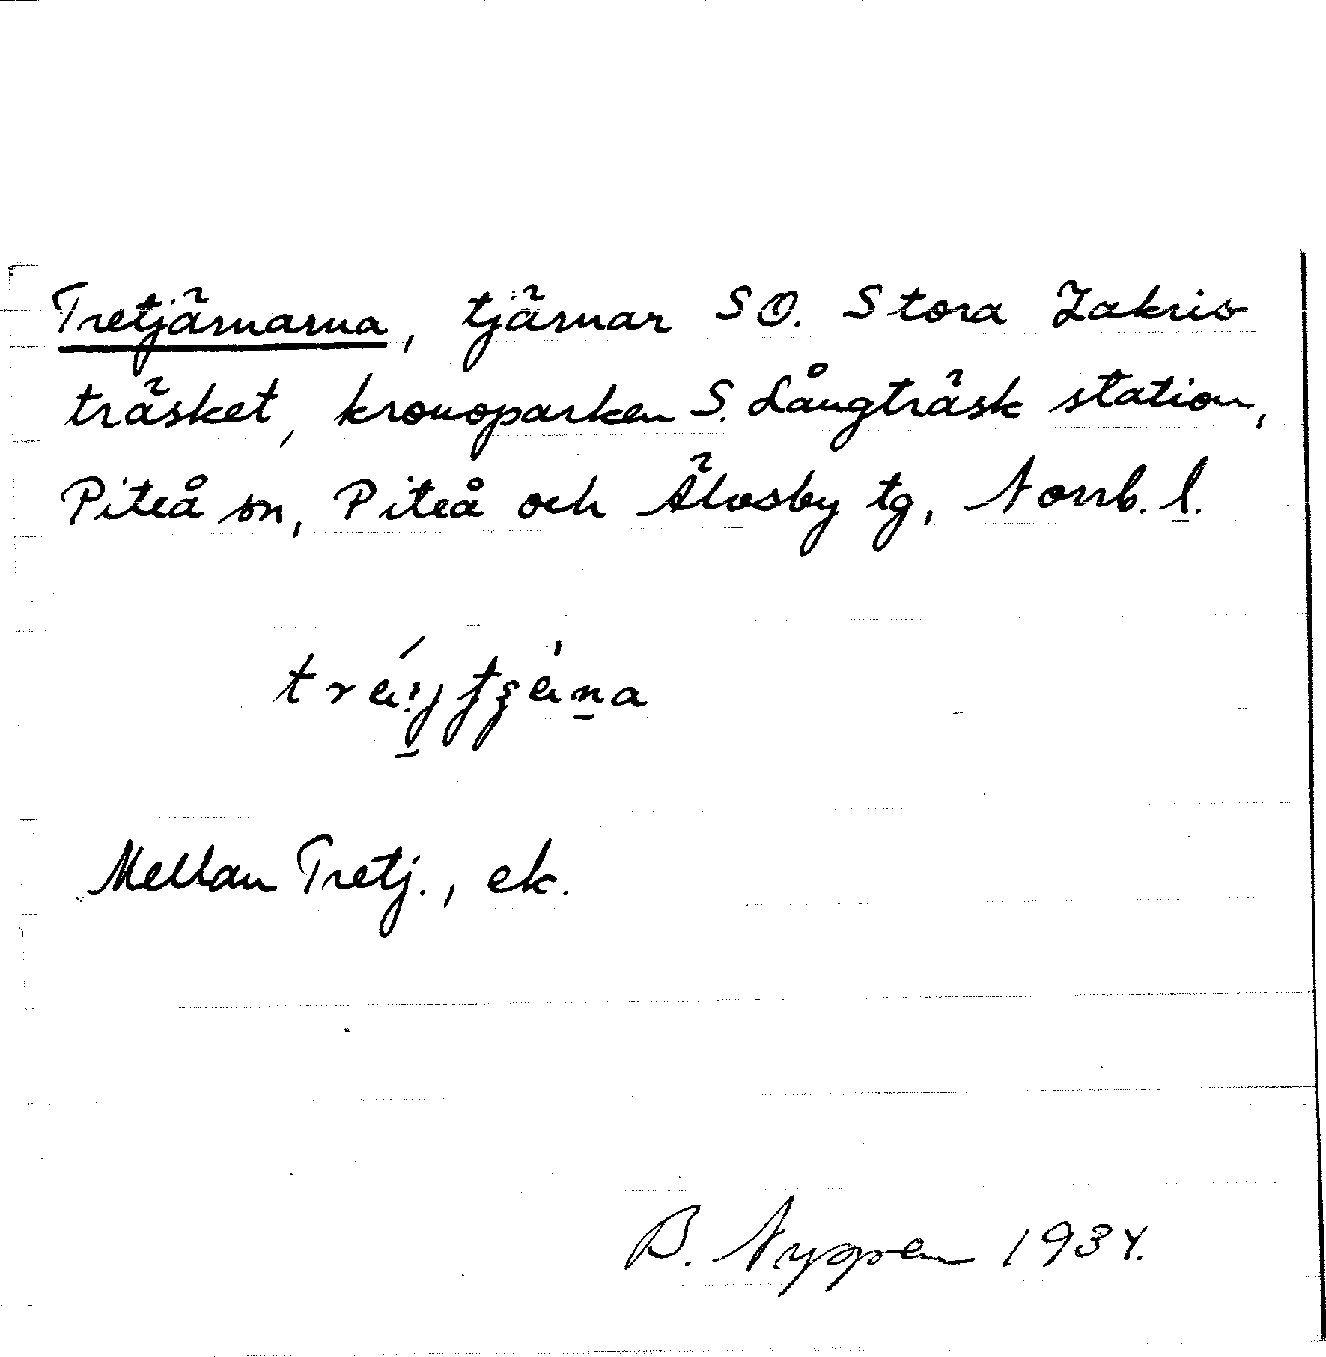 Tretjärnarna, tjärnar SO. Stora Zakris-
träsket, kronoparken S. Långträsk station,
Piteå sn, Piteå och Älvsby tg, Norrb. l.
Mellan Tretj., ek.
B. Nygren 1934.